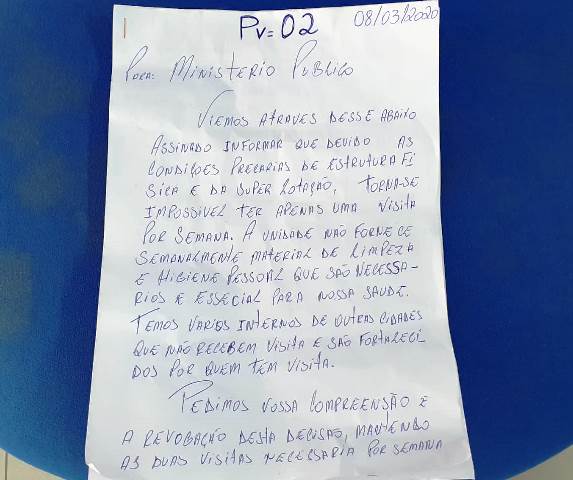 PV=02
08/03/2020
PARA: MINISTERIO PUBLICO
VIEMOS ATRAVES DESSE ABAIXO
ASSINADO INFORMAR QUE DEVIDO AS
CONDIÇOES PRECARIAS DE ESTRUTURA FI
SICA E DA SUPER LOTAÇÃO, TORNA-SE
IMPOSSIVEL TER APENAS UMA VISITA
POR SEMANA. A UNIDADE NÃO FORNECE
SEMANALMENTE MATERIAL DE LIMPEZA
E HIGIENE PESSOAL QUE SÃO NECESSA-
RIOS E ESSECIAL PARA NOSSA SAUDE.
TEMOS VARIOS INTERNOS DE OUTRAS CIDADES
QUE NÃO RECEBEM VISITA E SÃO FORTALECI
DOS POR QUEM TEM VISITA.
PEDIMOS VOSSA COMPREENSÃO E
A REVOGAÇÃO DESTA DECISÃO, MANTENDO
AS DUAS VISITAS NECESSARIA POR SEMANA